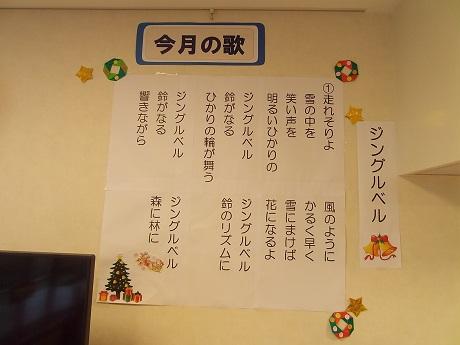 今月の歌
ジングルベル
①走れそりよ
風のように
雪の中を
かるく早く
笑い声を
雪にまけば
明るいひかりの
花になるよ
ジングルベル
ジングルベル
鈴がなる
鈴のリズムに
ひかりの輪が舞う
ジングルベル
ジングルベル
鈴がなる
森に林に
響きながら